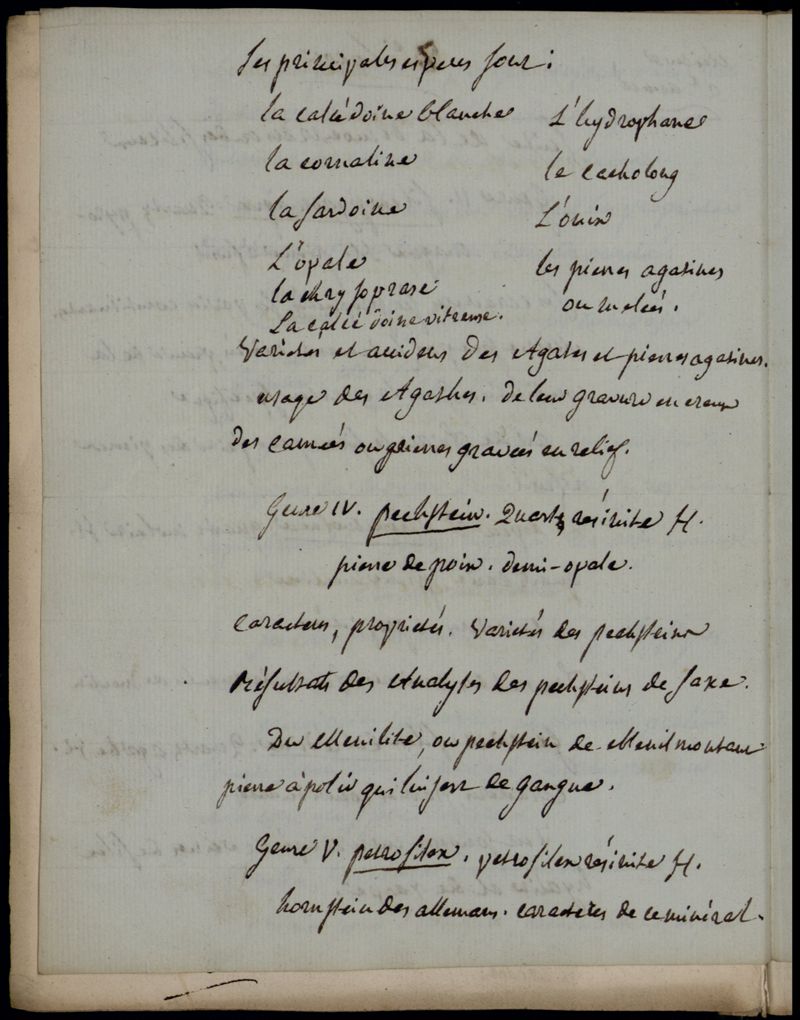 Les principales especes sont :
la calcédoine blanche
la cornaline
la sardoine
L'opale
la chrysoprase
La calcédoine vitreuse.
L'hydrophane
le cacholong
L'onix
les pierres agatines
ou melées.
Varietés et accidens des Agates et pierres agatines.
usage des Agathes. de leur gravure en creux
des camées ou pierres gravées en relief.
Genre IV. pechstein. Quartz résinite H.
pierre de poix. demi-opale.
caracteres, proprietés. Varietés des pechsteins
Résultats des Analyses des pechsteins de saxe.
Du Menilite, ou pechstein de Menilmontant
pierre à polir qui lui sert de gangue.
Genre V. petrosilex. petrosilex résinite H.
hornstein des allemans. caracteres de ce minéral.